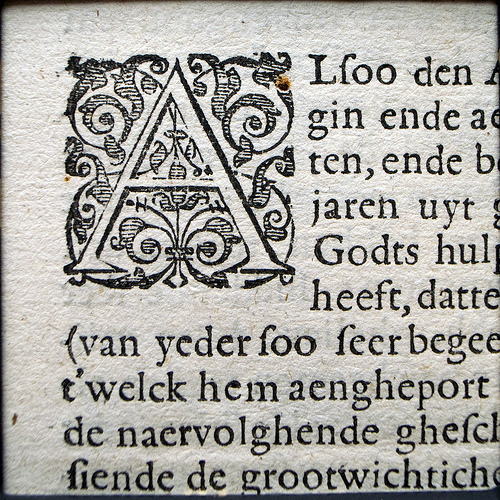 ALſoo den A
gin ende ae
ten, ende b
jaren uyt g
Godts hulp
heeft, datte
(van yeder ſoo ſeer begee
t'welck hem aengheport
de naervolghende gheſch
ſiende de grootwichtich